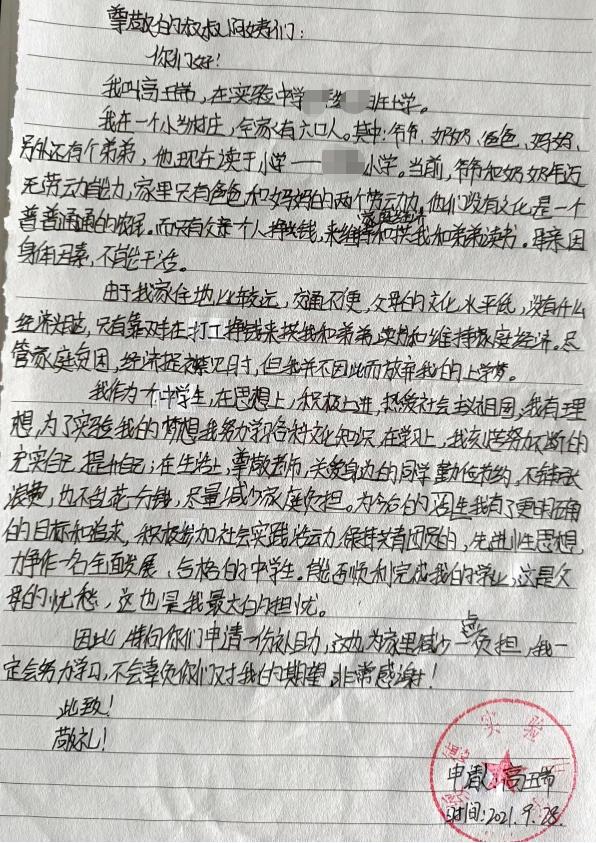 尊敬的叔叔阿姨们：
你们好！
我叫高玉常，在实验中学 班上学。
我在一个小乡村庄，全家有六口人。其中：爷爷、奶奶、爸爸、妈妈、
另外还有个弟弟，他现在读于小学——小学。当前，爷爷和奶奶年迈
无劳动能力，家里只有爸爸和妈妈的两个劳动力，他们没有文化是一个
普普通通的农民。而只有父亲一个人挣钱，来维持家庭经济和供我和弟弟读书。母亲因
身体因素，不能干活。
由于我家住地比较远，交通不便，父母的文化水平低，没有什么
经济来源，只有靠父亲在打工挣钱来供我和弟弟读书和维持家庭经济。尽
管家庭贫困，经济捉襟见肘，但我并不因此而放弃我的上学梦。
我作为一个中学生，在思想上，积极上进，热爱社会主义祖国，我有理
想，为了实验我的梦想我努力学习各种文化知识，在学习上，我刻苦努力不断的
充实自己，提升自己；在生活上，尊敬老师，关爱身边的同学勤俭节约。不铺张
浪费，也不乱花一分钱，尽量减少家庭负担。为今后的 我有了更明确
的目标和追求，积极参加社会实践活动，保持共青团员的，先进性思想，
力争作一名全面发展，合格的中学生。能否顺利完成我的学业，这是父
母的忧愁，这也是我最大的担忧。
因此，特向你们申请一份补助，这也为家里减少一点负担，我一
定会努力学习，不会辜负你们对我的期望，非常感谢！
此致！
敬礼！
实验
申请人：高玉常
时间：2021.9.28.